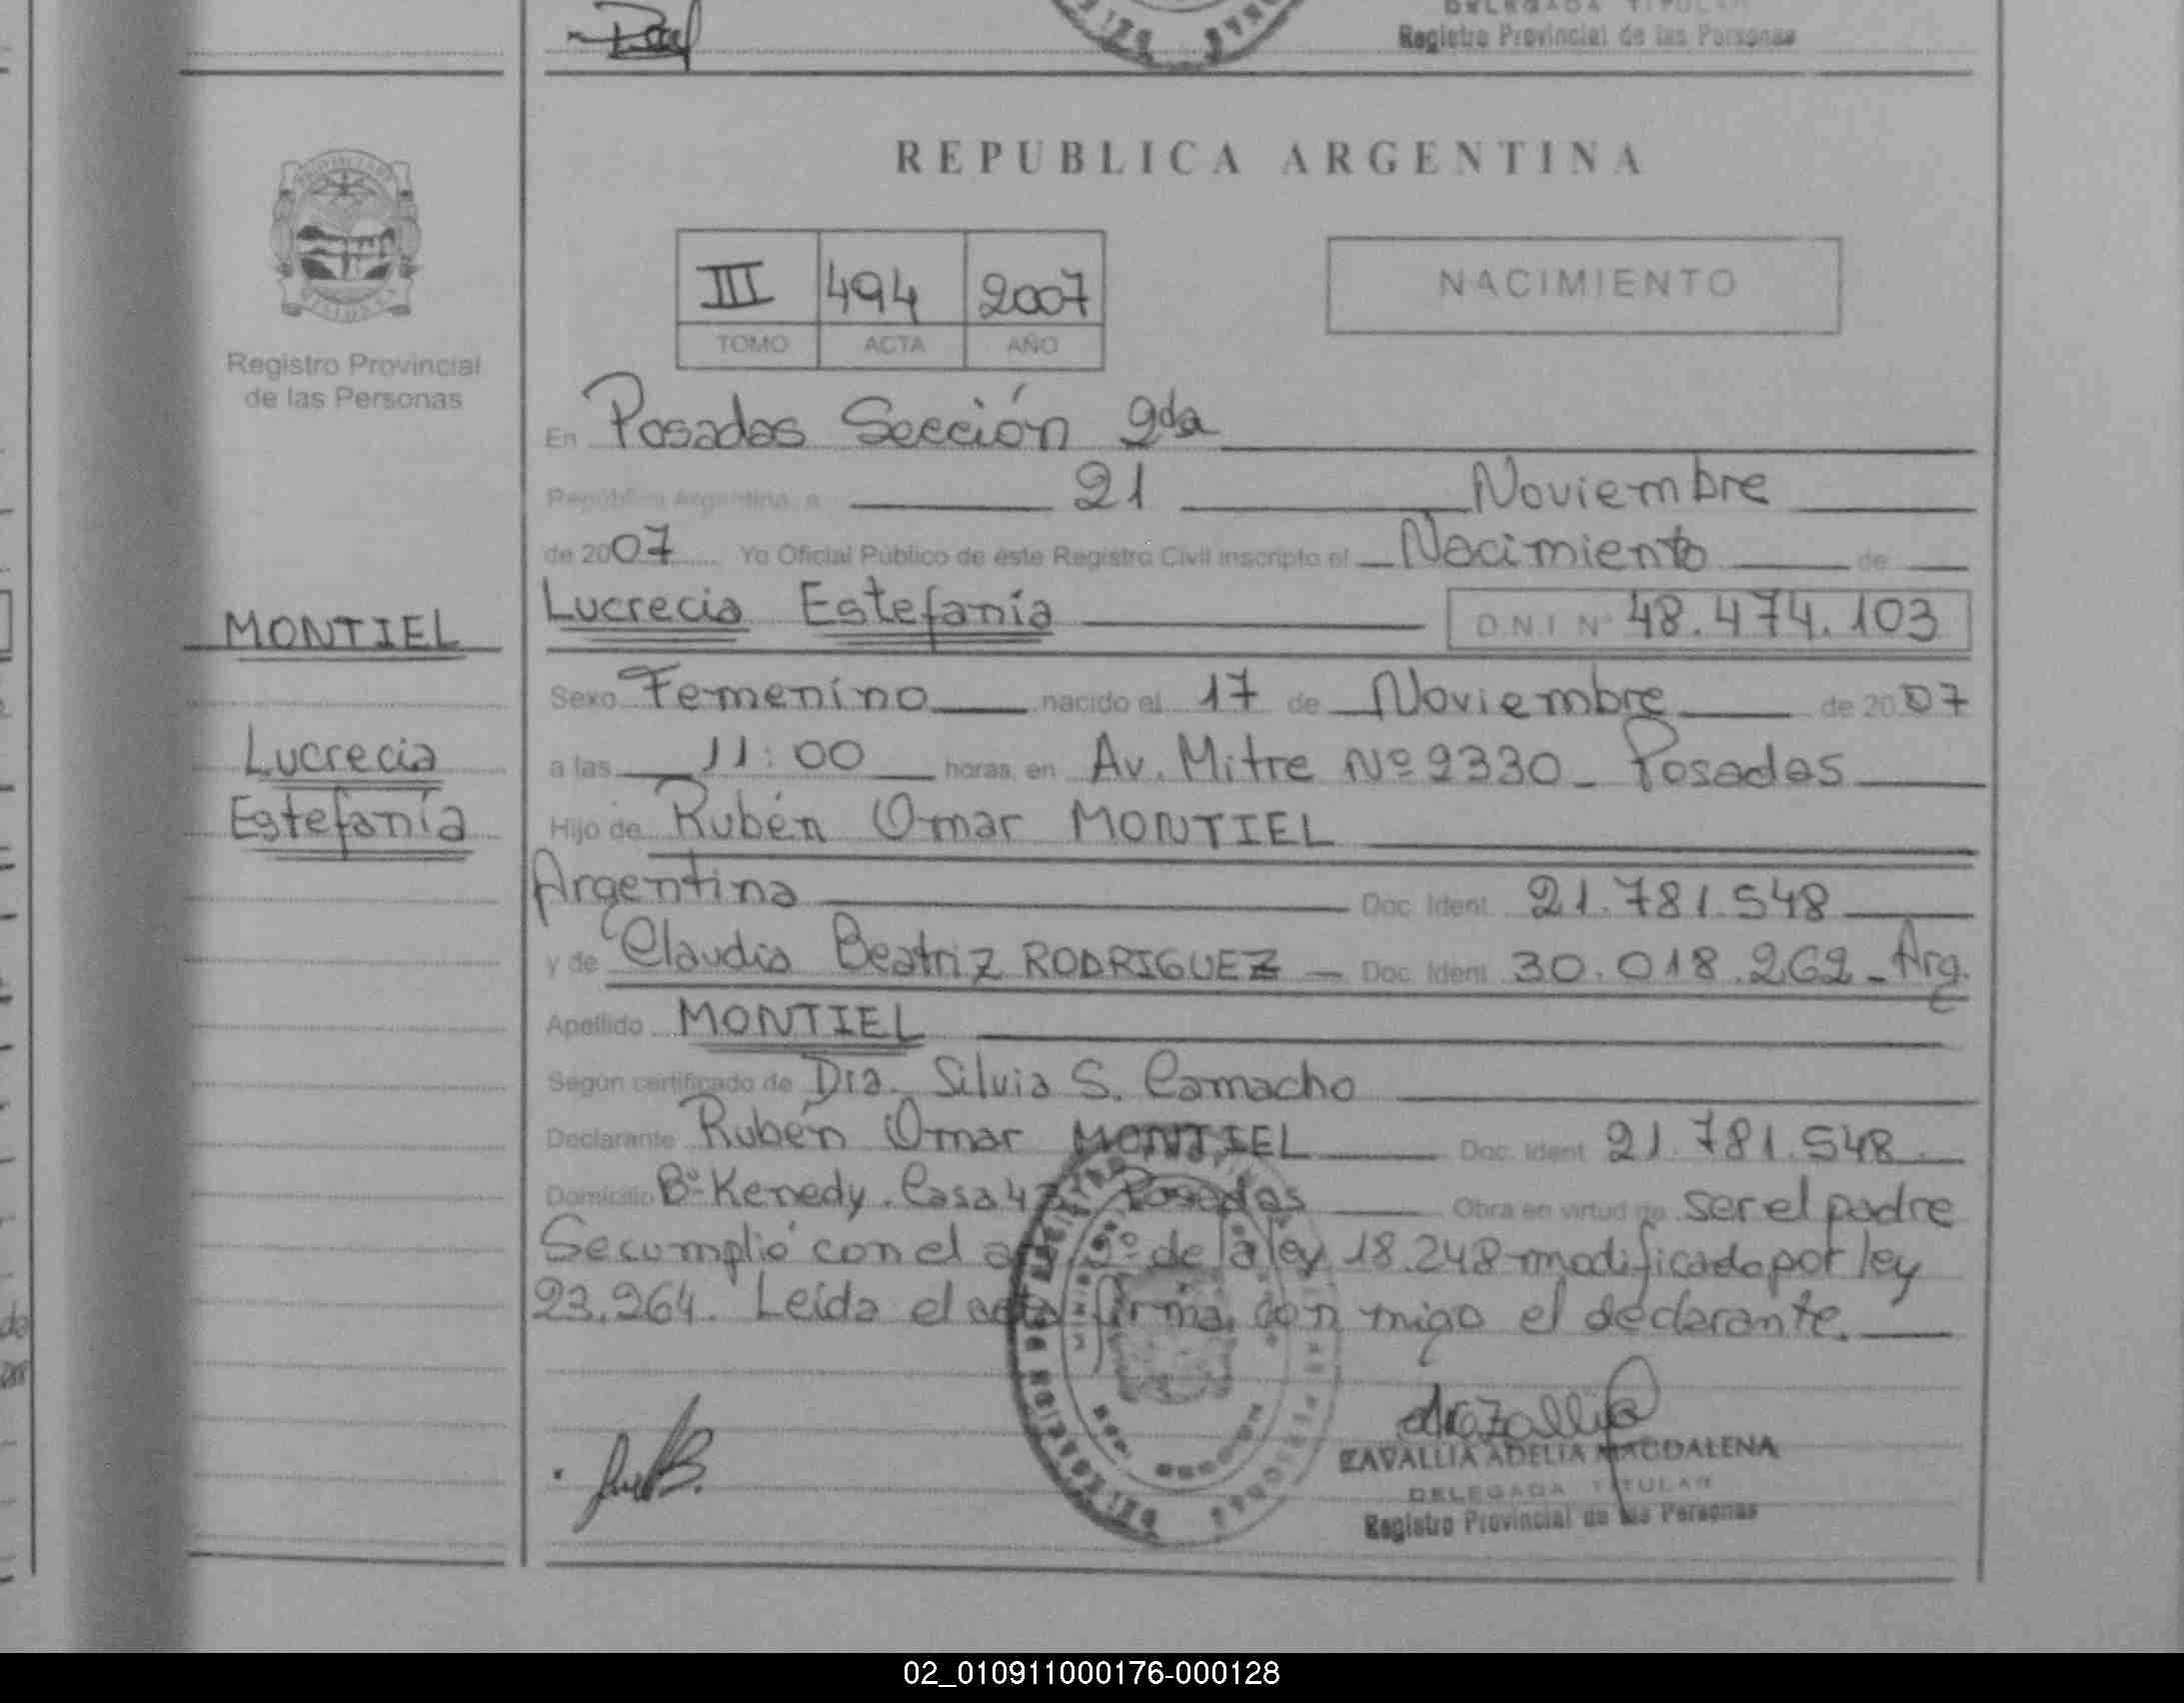 DELEGADA TITULAR
Registro Provincial de las Personas
REPUBLICA ARGENTINA
III 494 2007
TOMO ACTA AÑO
NACIMIENTO
Registro Provincial
de las Personas
MONTIEL
Lucrecia
Estefanía
En Posadas Sección 2da
República Argentina, a 21 Noviembre
de 2007 Yo Oficial Público de este Registro Civil inscripto el Nacimiento de
Lucrecia Estefanía D.N.I. Nº 48.474.103
Sexo Femenino nacido el 17 de Noviembre de 2007
a las 11:00 horas, en Av. Mitre Nº 2330 - Posadas
Hijo de Rubén Omar MONTIEL
Argentina Doc. Ident. 21.781.548
y de Claudia Beatriz RODRIGUEZ - Doc. Ident. 30.018.262 - Arg.
Apellido MONTIEL
Según certificado de Dra. Silvia S. Camacho
Declarante Rubén Omar MONTIEL Doc. Ident. 21.781.548.
Domicilio Bº Kenedy. Casa Posadas Obra en virtud de ser el padre
Se cumplió con el de la ley 18.248 modificado por ley
23.264. Leída el acta firma con migo el declarante.
ZAVALLIA ADELIA MAGDALENA
DELEGADA TITULAR
Registro Provincial de las Personas
02_010911000176-000128